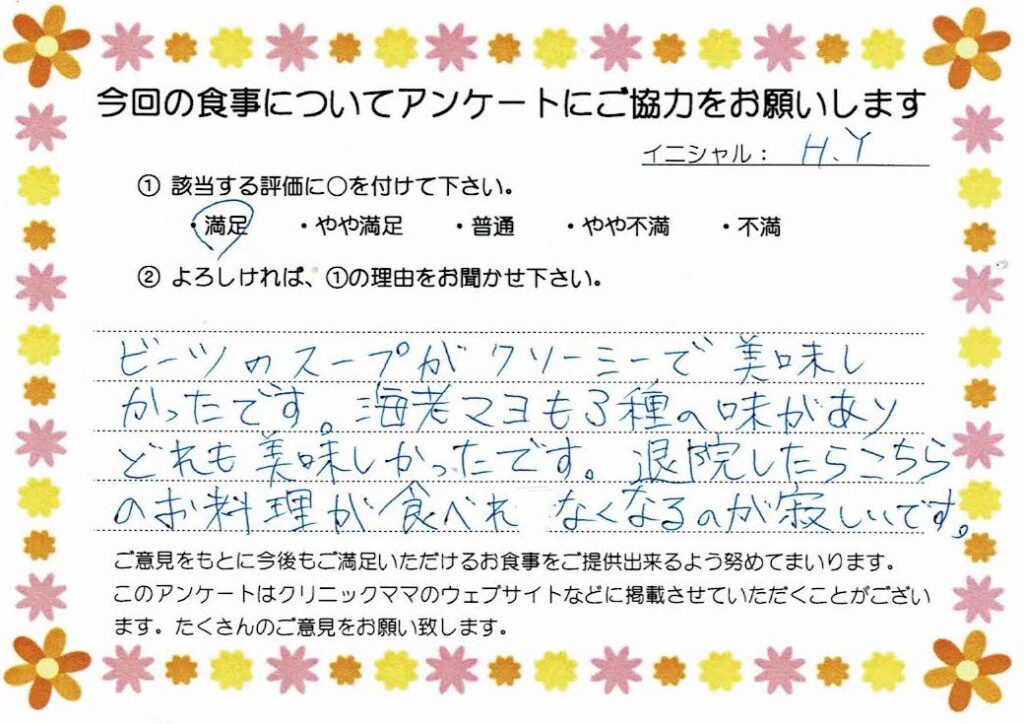 今回の食事についてアンケートにご協力をお願いします
イニシャル： H.Y
① 該当する評価に○を付けて下さい。
・満足 ・やや満足 ・普通 ・やや不満 ・不満
② よろしければ、①の理由をお聞かせ下さい。
ビーツのスープがクリーミーで美味し
かったです。海老マヨも3種の味があり
どれも美味しかったです。退院したらこちら
のお料理が食べれなくなるのが寂しいです。
ご意見をもとに今後もご満足いただけるお食事をご提供出来るよう努めてまいります。
このアンケートはクリニックママのウェブサイトなどに掲載させていただくことがござい
ます。たくさんのご意見をお願い致します。